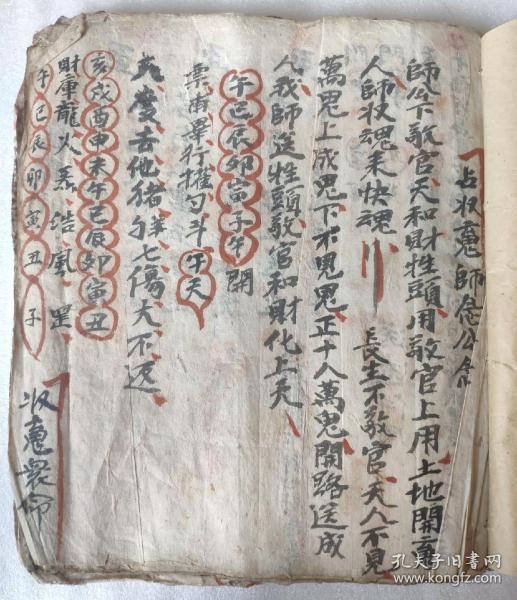 占收䰟師怹公念
師父下敬官天和財牲頭用敬官上用土地開
人師收魂来快魂 長生不敬官天人不見
萬鬼上成鬼下不見鬼正十八萬鬼開路送成
人我師送牲頭敬官和財化上天
午巳辰卯寅子午 開
票雨畢行搉勺斗午天
天度去他猪羊七傷大不送
亥戌酉申未午巳辰卯寅丑
財庫龍火 浩風 罡
午巳辰卯寅丑子
收䰟眾命
孔夫子旧书网
www.kongfz.com